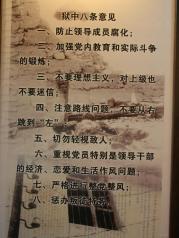 狱中八条意见
一、防止领导成员腐化；
二、加强党内教育和实际斗争
的锻炼；
三、不要理想主义，对上级也
不要迷信；
四、注意路线问题，不要从右
跳到“左”
五、切勿轻视敌人；
六、重视党员特别是领导干部
的经济、恋爱和生活作风问题；
七、严格进行整党整风；
八、惩办